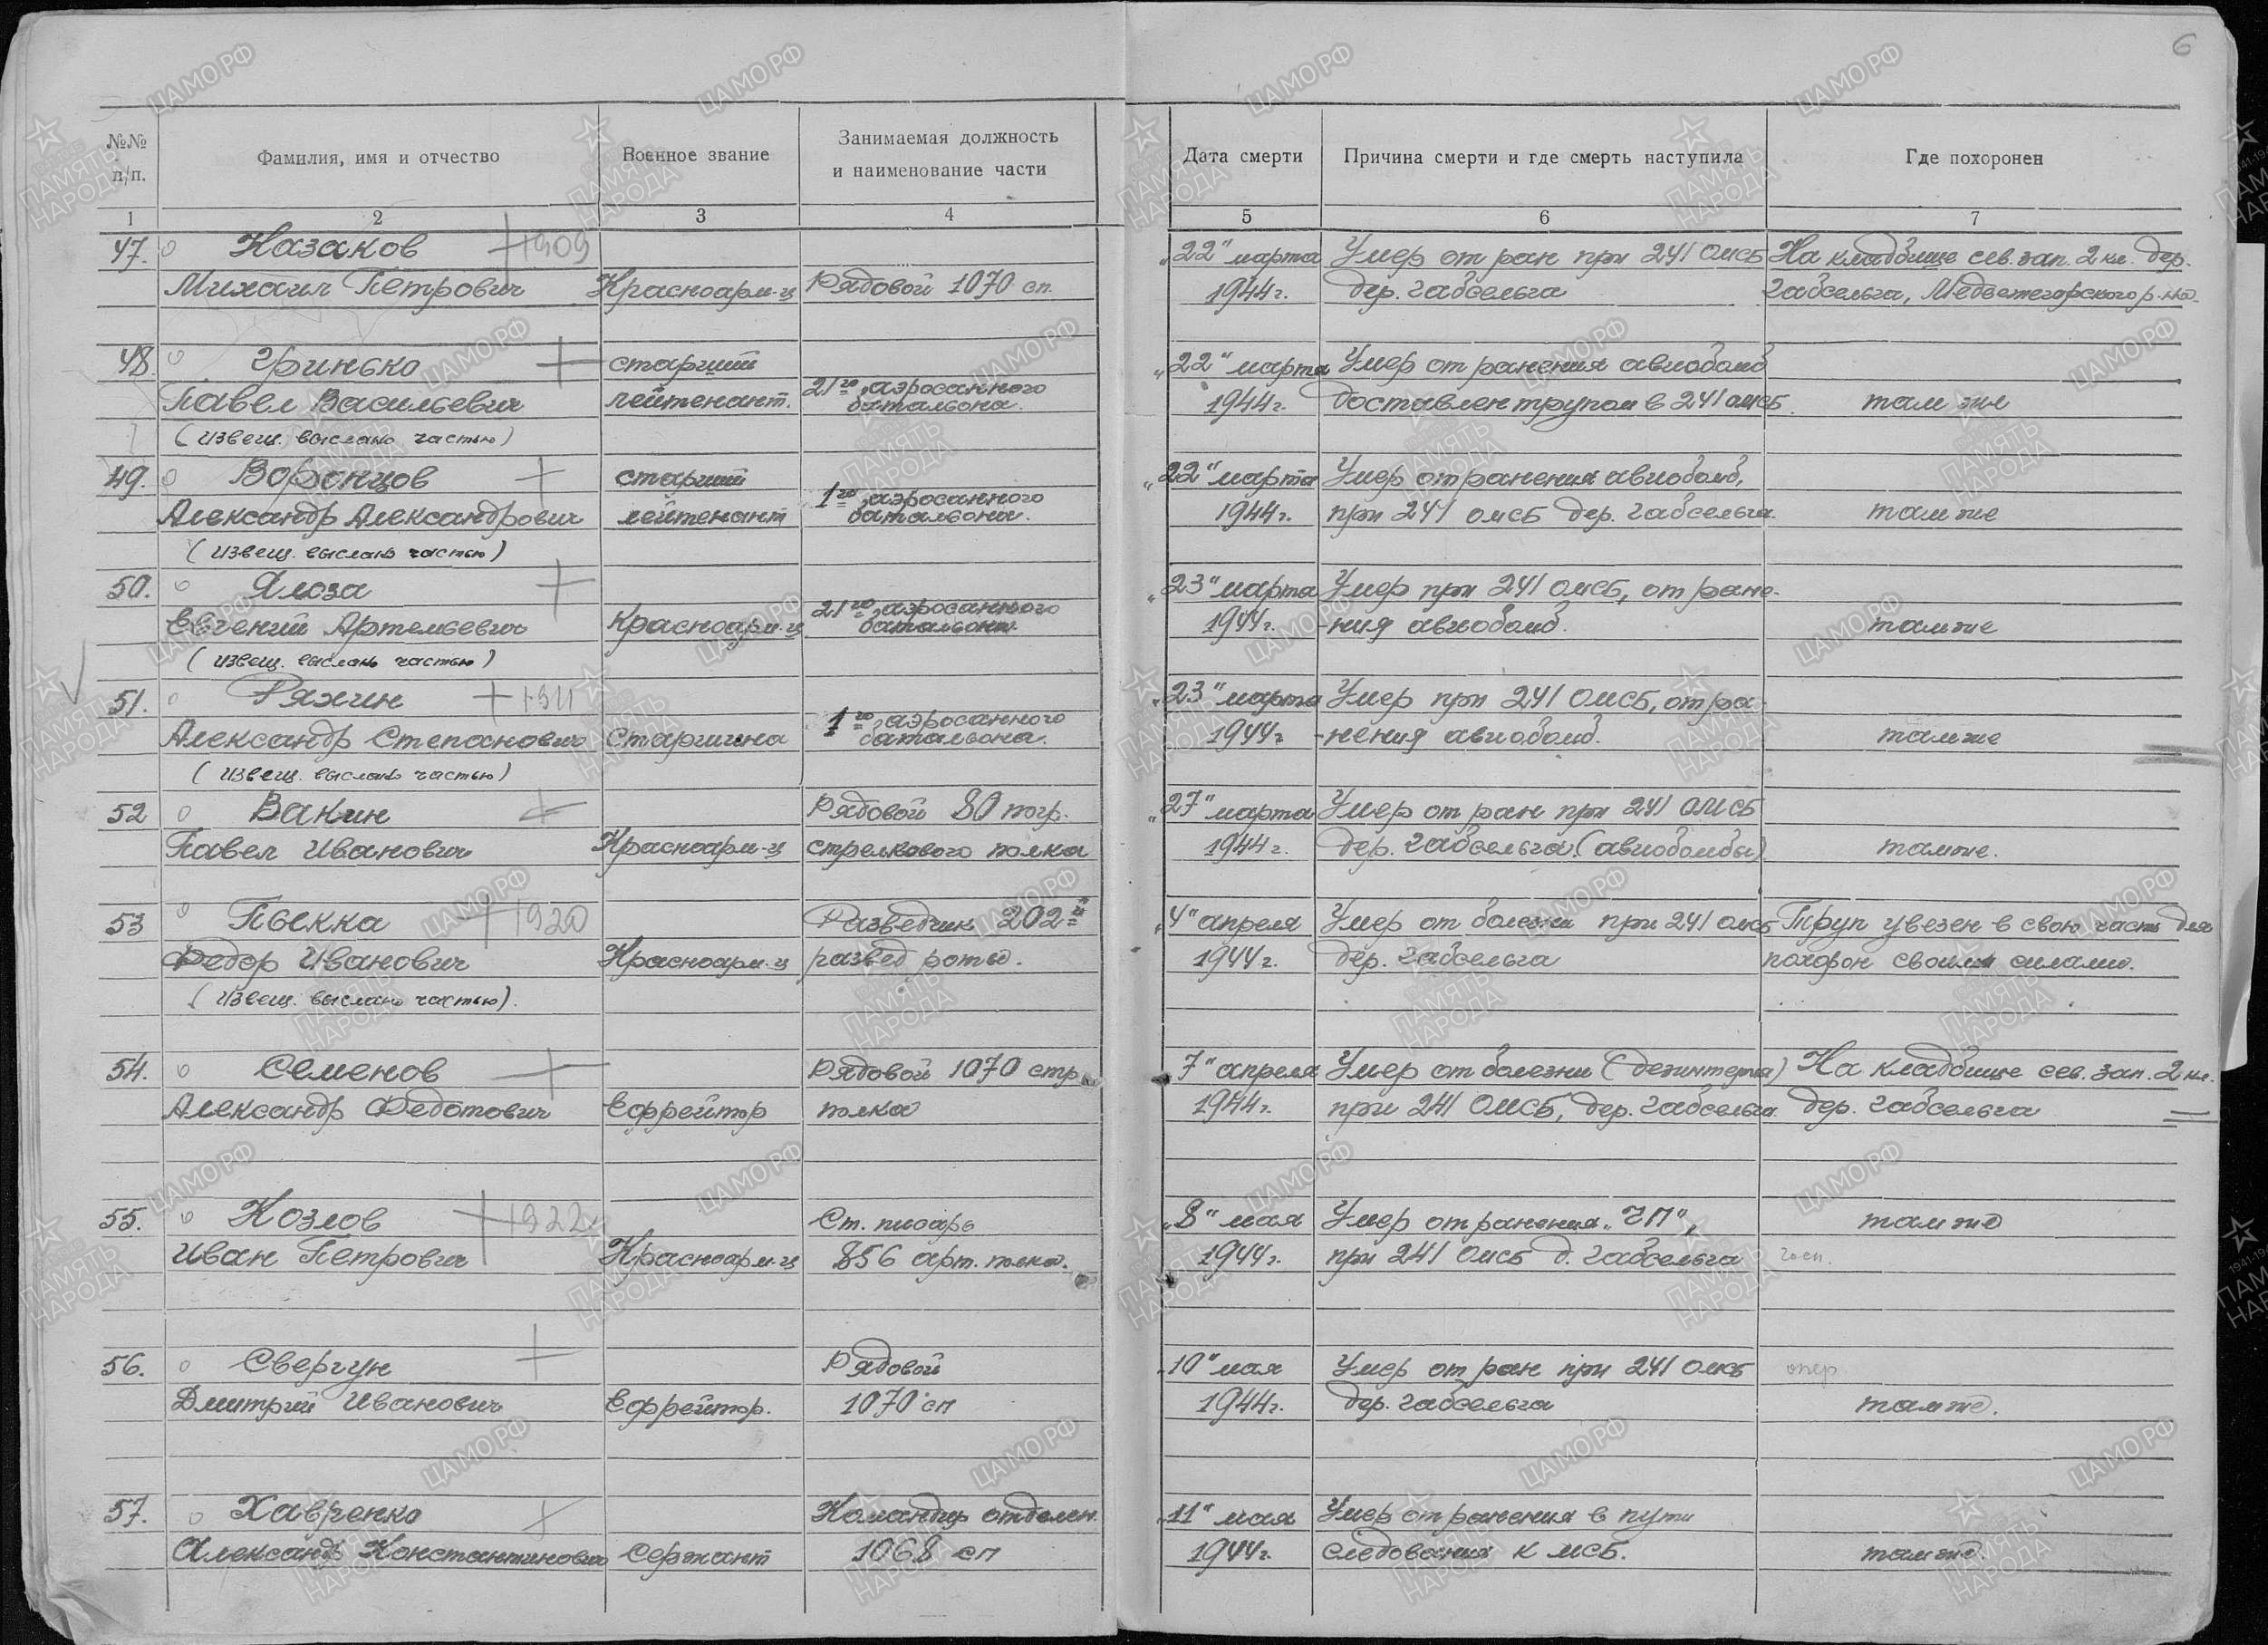 6
№№ п/п.
Фамилия, имя и отчество
Военное звание
Занимаемая должность
и наименование части
Дата смерти
Причина смерти и где смерть наступила
Где похоронен
1 2 3 4 5 6 7
47. Казаков +1909 „22" марта Умер от ран при 241 ОМСБ На кладбище сев. зап. 2 кл. дер.
Михаил Петрович Красноарм-ц Рядовой 1070 сп. 1944г. дер. Габсельга Габсельга, Медвежегорского р-на.
48. Гринько + старший „22" марта Умер от ранения авиобомб
Павел Васильевич лейтенант. 21го аэросанного батальона. 1944г. доставлен трупом в 241 омсб. там же
(извещ. выслано частью)
49. Воронцов + старший „22" марта Умер от ранения авиобомб,
Александр Александрович лейтенант 1го аэросанного батальона. 1944г. при 241 омсб дер. Габсельга там же
(извещ. выслано частью)
50. Ялоза + „23" марта Умер при 241 ОМСБ, от ране-
Евгений Артемьевич Красноарм-ц 21го аэросанного батальона 1944г. -ния авиобомб. там же
(извещ. выслано частью)
51. Ряхин +1911 „23" марта Умер при 241 ОМСБ, от ра-
Александр Степанович Старшина 1го аэросанного батальона. 1944г -нения авиобомб. там же
(извещ. выслано частью)
52 Вакин + Рядовой 80 погр. „27" марта Умер от ран при 241 ОМСБ
Павел Иванович Красноарм-ц стрелкового полка 1944г. дер. Габсельга. (авиобомбы) там же.
53 Пьекка +1920 Разведчик 202-й „4" апреля Умер от болезни при 241 омсб Труп увезен в свою часть для
Федор Иванович Красноарм-ц развед роты. 1944г. дер. Габсельга похорон своими силами.
(извещ. выслано частью).
54. Семенов + Рядовой 1070 стр. 7" апреля Умер от болезни (дезинтерия) На кладбище сев. зап. 2 кл.
Александр Федотович Ефрейтор полка 1944г. при 241 ОМСБ, дер. Габсельга. дер. Габсельга
55. Козлов +1922 Ст. писарь „8" мая Умер от ранения „ЧП", там же
Иван Петрович Красноарм-ц 856 арт. полка. 1944г. при 241 ОМСБ д. Габсельга
56. Свергун + Рядовой „10" мая Умер от ран при 241 ОМСБ
Дмитрий Иванович Ефрейтор. 1070 сп 1944г. дер. Габсельга там же.
57. Хавренко + Командир отделен. „11" мая Умер от ранения в пути
Александр Константинович Сержант 1068 сп 1944г. следования к МСБ. там же.
ЦАМО РФ
ПАМЯТЬ
НАРОДА